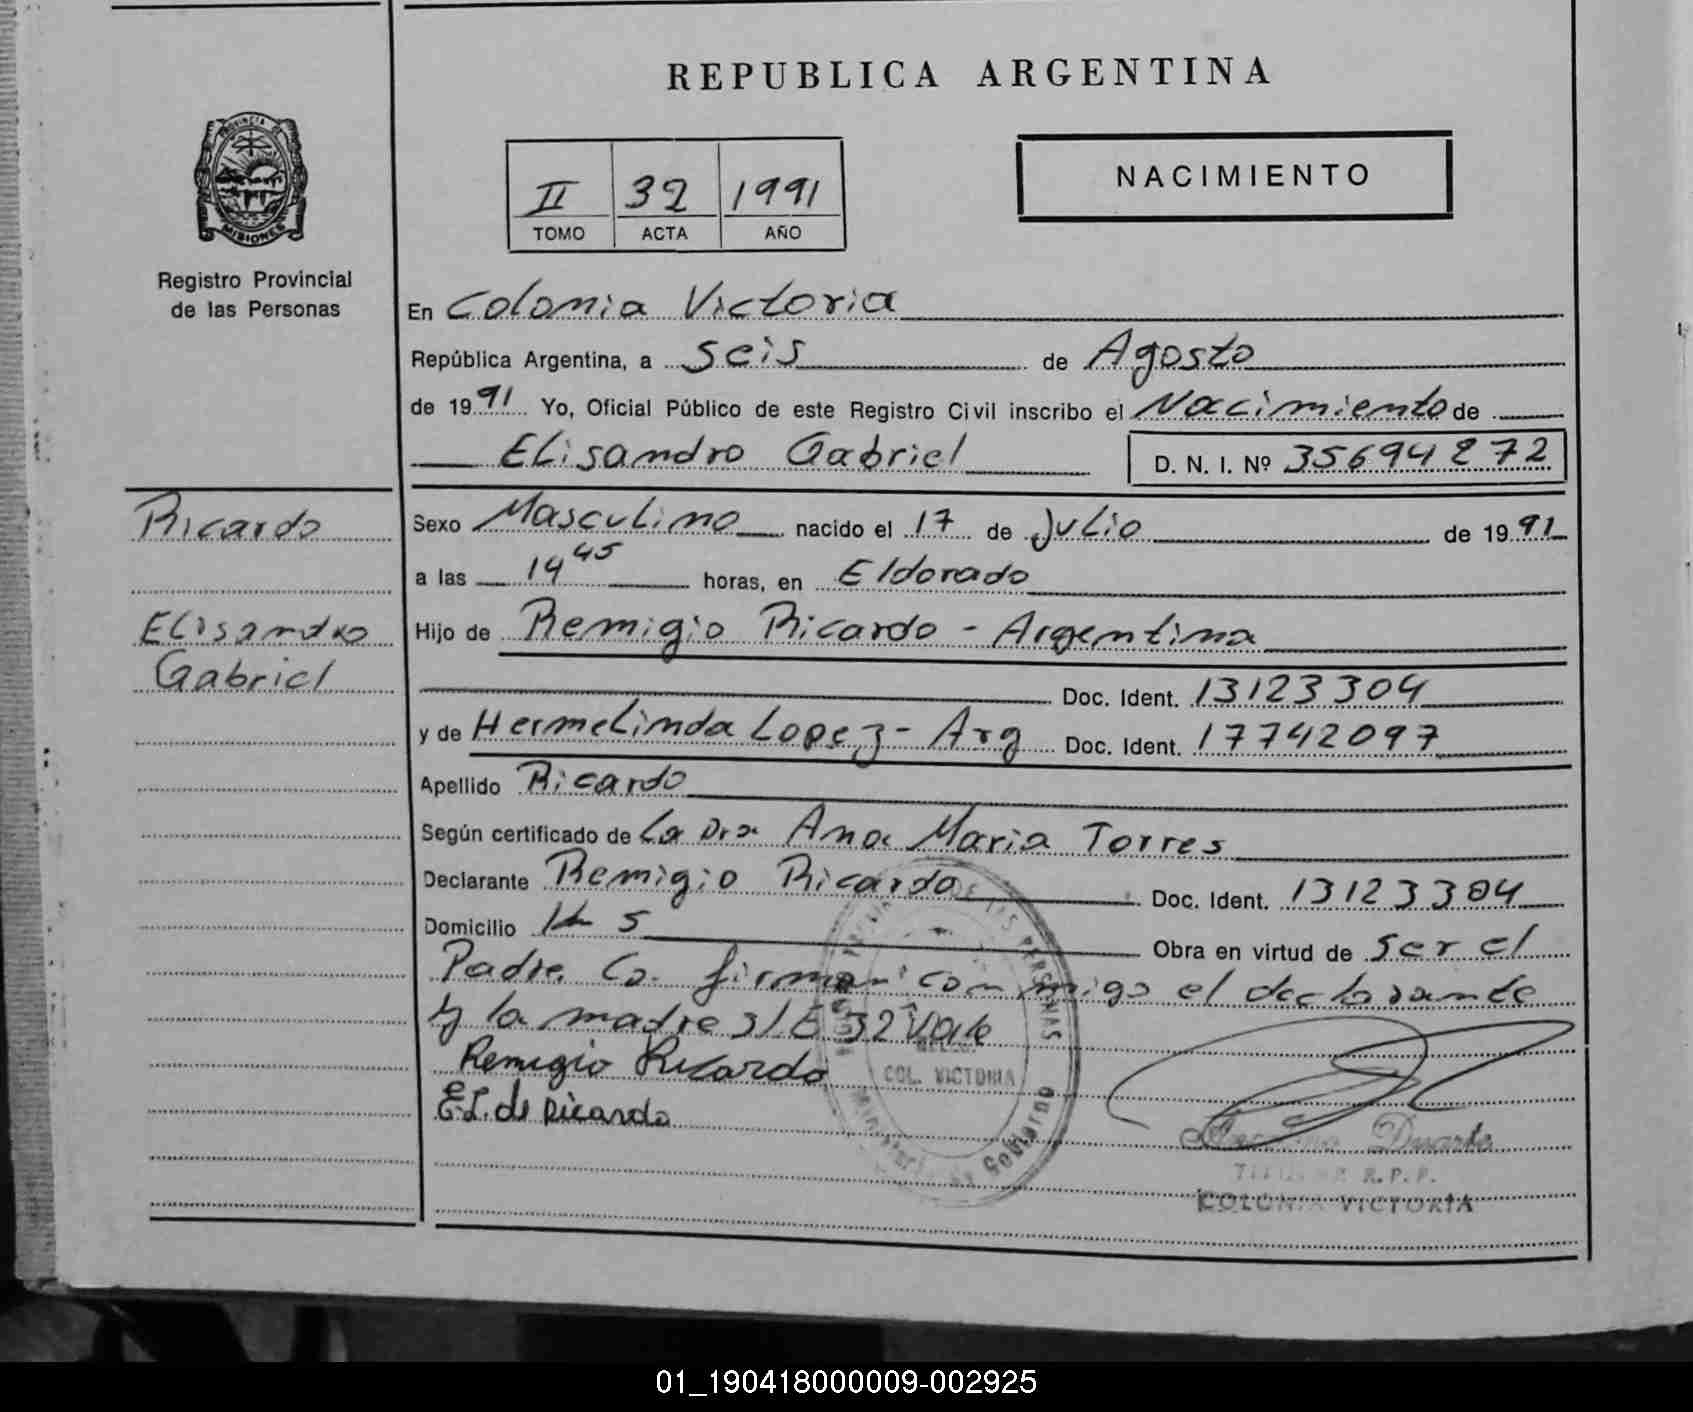 REPUBLICA ARGENTINA
PROVINCIA DE
MISIONES
Registro Provincial
de las Personas
II 32 1991
TOMO ACTA AÑO
NACIMIENTO
En Colonia Victoria
República Argentina, a seis de Agosto
de 1991 Yo, Oficial Público de este Registro Civil inscribo el Nacimiento de
Elisandro Gabriel D. N. I. Nº 35694272
Ricardo
Elisandro
Gabriel
Sexo Masculino nacido el 17 de Julio de 1991
a las 19 45 horas, en Eldorado
Hijo de Remigio Ricardo - Argentina
Doc. Ident. 13123304
y de Hermelinda Lopez - Arg Doc. Ident. 17742097
Apellido Ricardo
Según certificado de La Dra Ana Maria Torres
Declarante Remigio Ricardo Doc. Ident. 13123304
Domicilio 5 Obra en virtud de ser el
Padre. Co. firman conmigo el declarante
y la madre s/E 32 Vale
Remigio Ricardo
E.L. de Ricardo
DE LAS PERSONAS
COL. VICTORIA
Ministerio de Gobierno
Duarte
R.P.P.
COLONIA VICTORIA
01_190418000009-002925